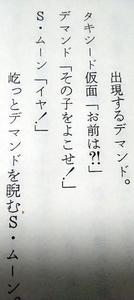 出現するデマンド。
タキシード仮面「お前は?!」
デマンド「その子をよこせ!」
S・ムーン「イヤ!」
屹っとデマンドを睨むS・ムーン。